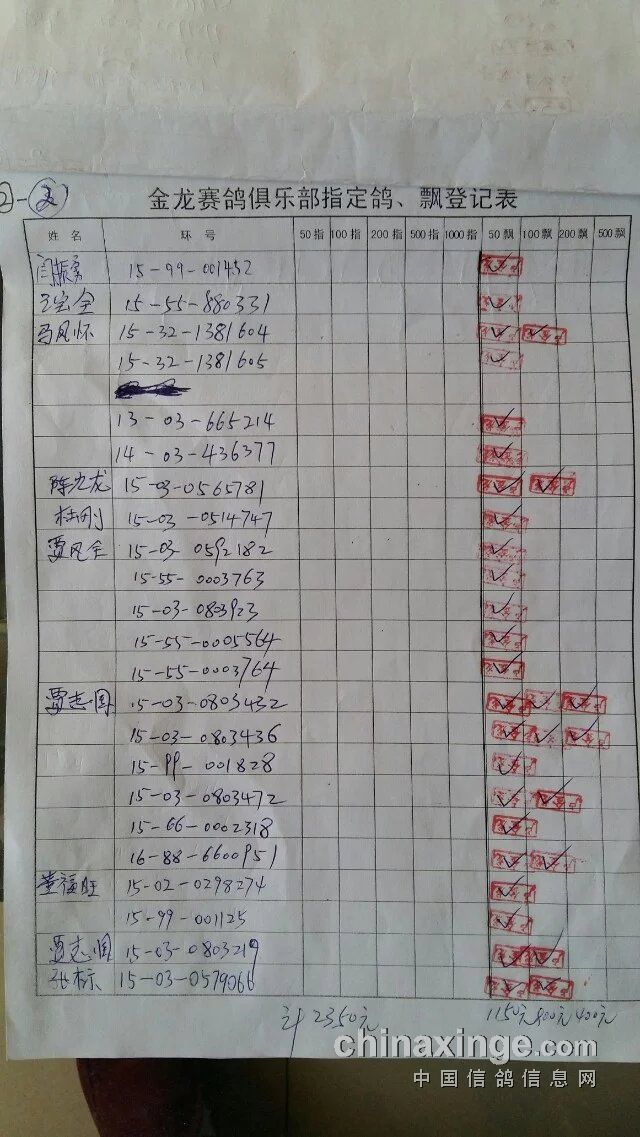 金龙赛鸽俱乐部指定鸽、飘登记表
姓 名 环 号 50指 100指 200指 500指 1000指 50飘 100飘 200飘 500飘
闫振勇 15-99-001452
王宝全 15-55-880331
马凤怀 15-32-1381604
15-32-1381605
13-03-665214
14-03-436377
陈九龙 15-03-0565781
杜刚 15-03-0514747
贾凤全 15-03 0592182
15-55-0003763
15-03-083923
15-55-0005564
15-55-0003764
贾志国 15-03-0803432
15-03-0803436
15-99-001828
15-03-0803472
15-66-0002318
16-88-6600951
董福旺 15-02-0298274
15-99-001125
贾志国 15-03-0803219
张标 15-03-0579066
计2350元 1150元 800元 400元
chinaxinge.com
中国信鸽信息网